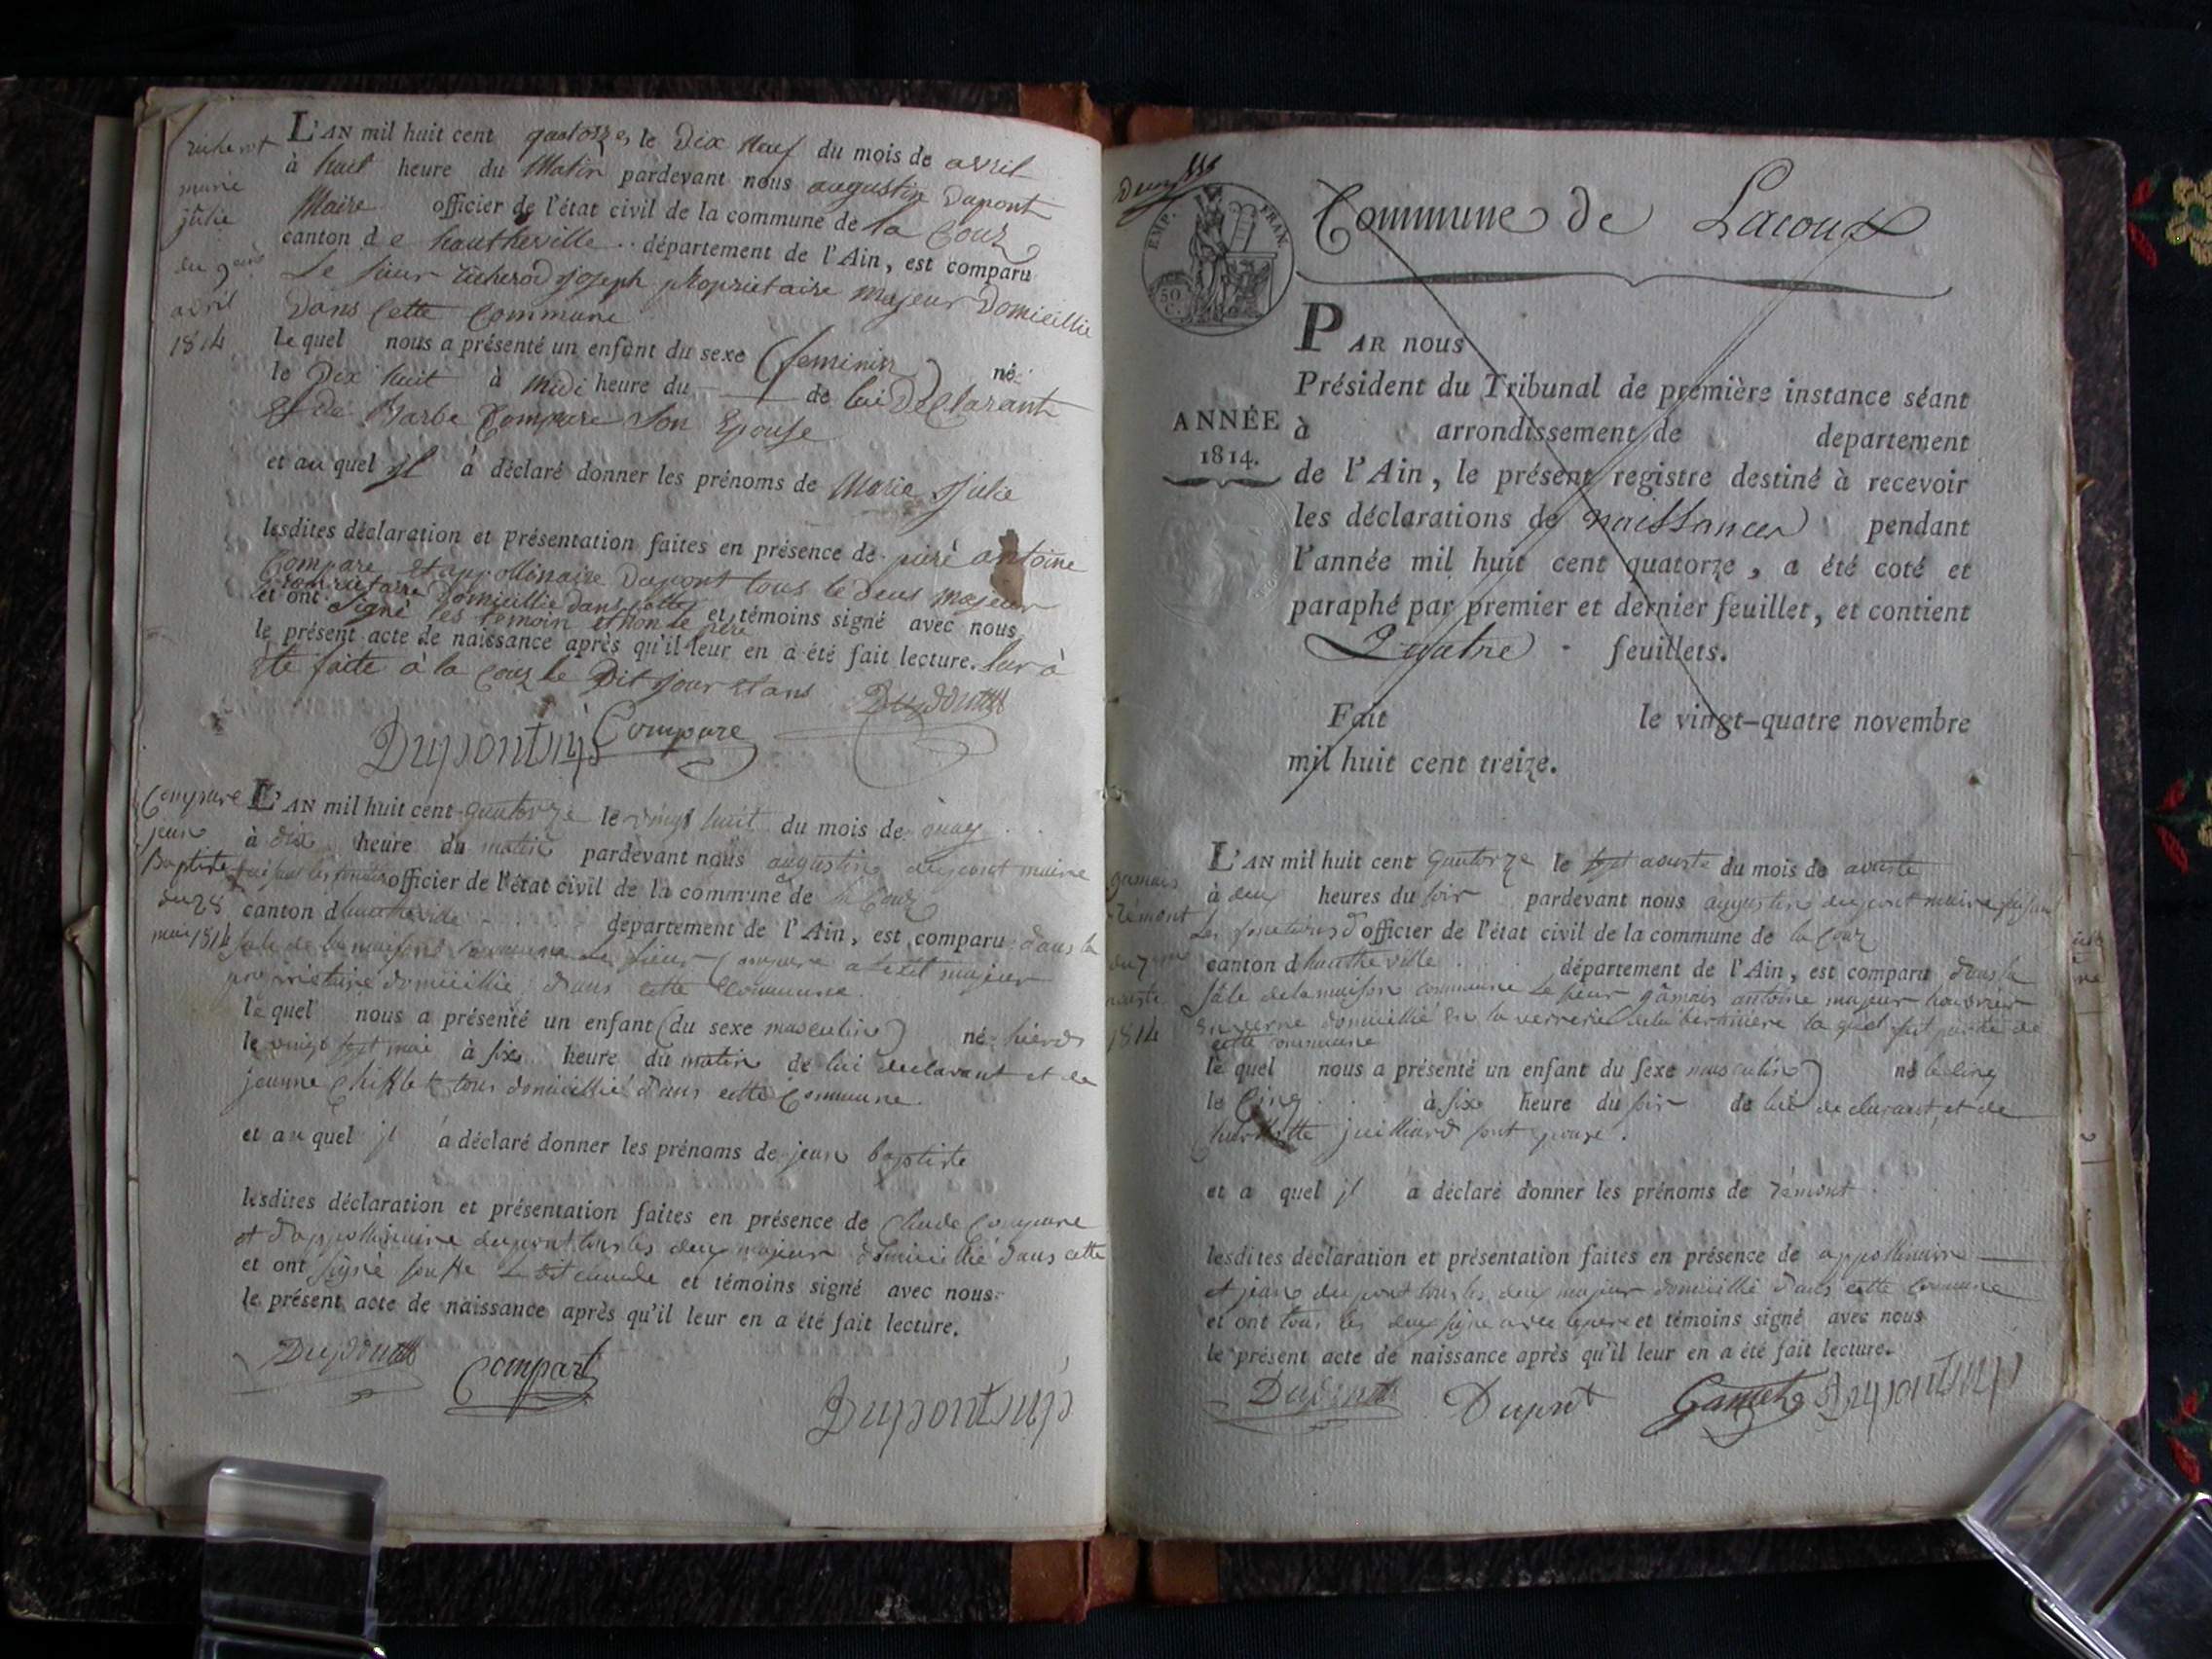 richerot
marie
julie
du 9
avril
1814
L'AN mil huit cent quatorze, le Dix Neuf du mois de avril
à huit heure du Matin pardevant nous augustin Dupont
Maire officier de l'état civil de la commune de la Couz
canton de hautheville département de l'Ain, est comparu
Le sieur richerod joseph proprietaire Majeur Domicillie
Dans Cette Commune
le quel nous a présenté un enfant du sexe (feminin) né
le Dix huit à Midi heure du de lui Déclarant
et de Barbe Compare Son Epouse
et au quel jl à déclaré donner les prénoms de Marie Julie
lesdites déclaration et présentation faites en présence de piere antoine
Compare et appollinaire Dupont tous le deus Majeur
Domicillie dans cette
et ont signé les temoin et non le pere et témoins signé avec nous
le présent acte de naissance après qu'il leur en a été fait lecture. lur à
ete faite à la Couz le Dit jour et ans
Dupont
Compare
Compare
jean
Baptiste
du 28
mai 1814
L'AN mil huit cent quatorze le vingt huit du mois de may
à dix heure du matin pardevant nous augustin dupont maire
faisant les fonctions officier de l'état civil de la commune de la Couz
canton d hautheville département de l'Ain, est comparu dans la
sale de la maison commune Le sieur Compare majeur
proprietaire domicillie dans cette Commune.
le quel nous a présenté un enfant (du sexe masculin) né hierd
le vingt sept mai à six heure du matin de lui declarant et de
jeanne Chifflet tous domicillié dans cette Commune.
et au quel jl a déclaré donner les prénoms de jean baptiste
lesdites déclaration et présentation faites en présence de Claude Compare
et d'appollinaire dupont tous les deux majeur domicillié dans cette
et ont signé et témoins signé avec nous
le présent acte de naissance après qu'il leur en a été fait lecture.
Dupont
Compart
EMP. FRAN.
50 C.
Commune de Lacoux
PAR nous
Président du Tribunal de première instance séant
ANNÉE
1814.
à arrondissement de departement
de l'Ain, le présent registre destiné à recevoir
les déclarations de naissances pendant
l'année mil huit cent quatorze, a été coté et
paraphé par premier et dernier feuillet, et contient
Quatre feuillets.
Fait le vingt-quatre novembre
mil huit cent treize.
gamais
rémont
du 7
aouste
1814
L'AN mil huit cent quatorze le sept aouste du mois de aouste
à deux heures du soir pardevant nous augustin dupont maire faisant
les fonctions d'officier de l'état civil de la commune de la Couz
canton d hautheville département de l'Ain, est comparu dans la
sale de la maison commune Le sieur gamais antoine majeur houvrier
en verre domicillié en la verrerie de la la quel fait partie de
cette commune
le quel nous a présenté un enfant du sexe masculin) né le cinq
le Cinq à six heure du soir de lui declarant et de
juilliard sont epouse.
et a quel jl a déclaré donner les prénoms de rémont
lesdites déclaration et présentation faites en présence de appollinaire
et jean dupont tous les deux majeur domicillié dans cette commune
et ont tous les deux signe avec le pere et témoins signé avec nous
le présent acte de naissance après qu'il leur en a été fait lecture.
Dupont
Dupont